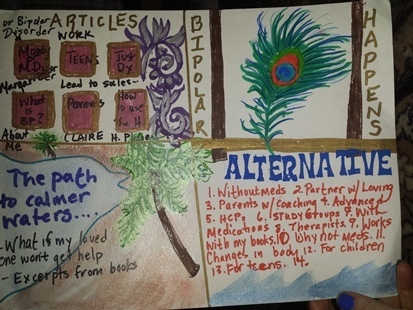 or Bipolar ARTICLES
Dysorder WORK
Most
TEENS
Just
Dx
Lead to sales...
What
BP?
Parents
How
to use
the H
About
Me
CLAIRE H. P
BIPOLAR
HAPPENS
The path
to calmer
waters....
- What if my loved
one won't get help
- Excerpts from books
ALTERNATIVE
1. Without meds 2. Partner w/ Loving
3. Parents w/ coaching 4. Advanced
5. HCPs 6. Study Groups 7. With
Medications 8. Therapists 9. Works
With my books. 10 Why not meds. 11.
Changes in body 12. For children
13. For teens. 14.